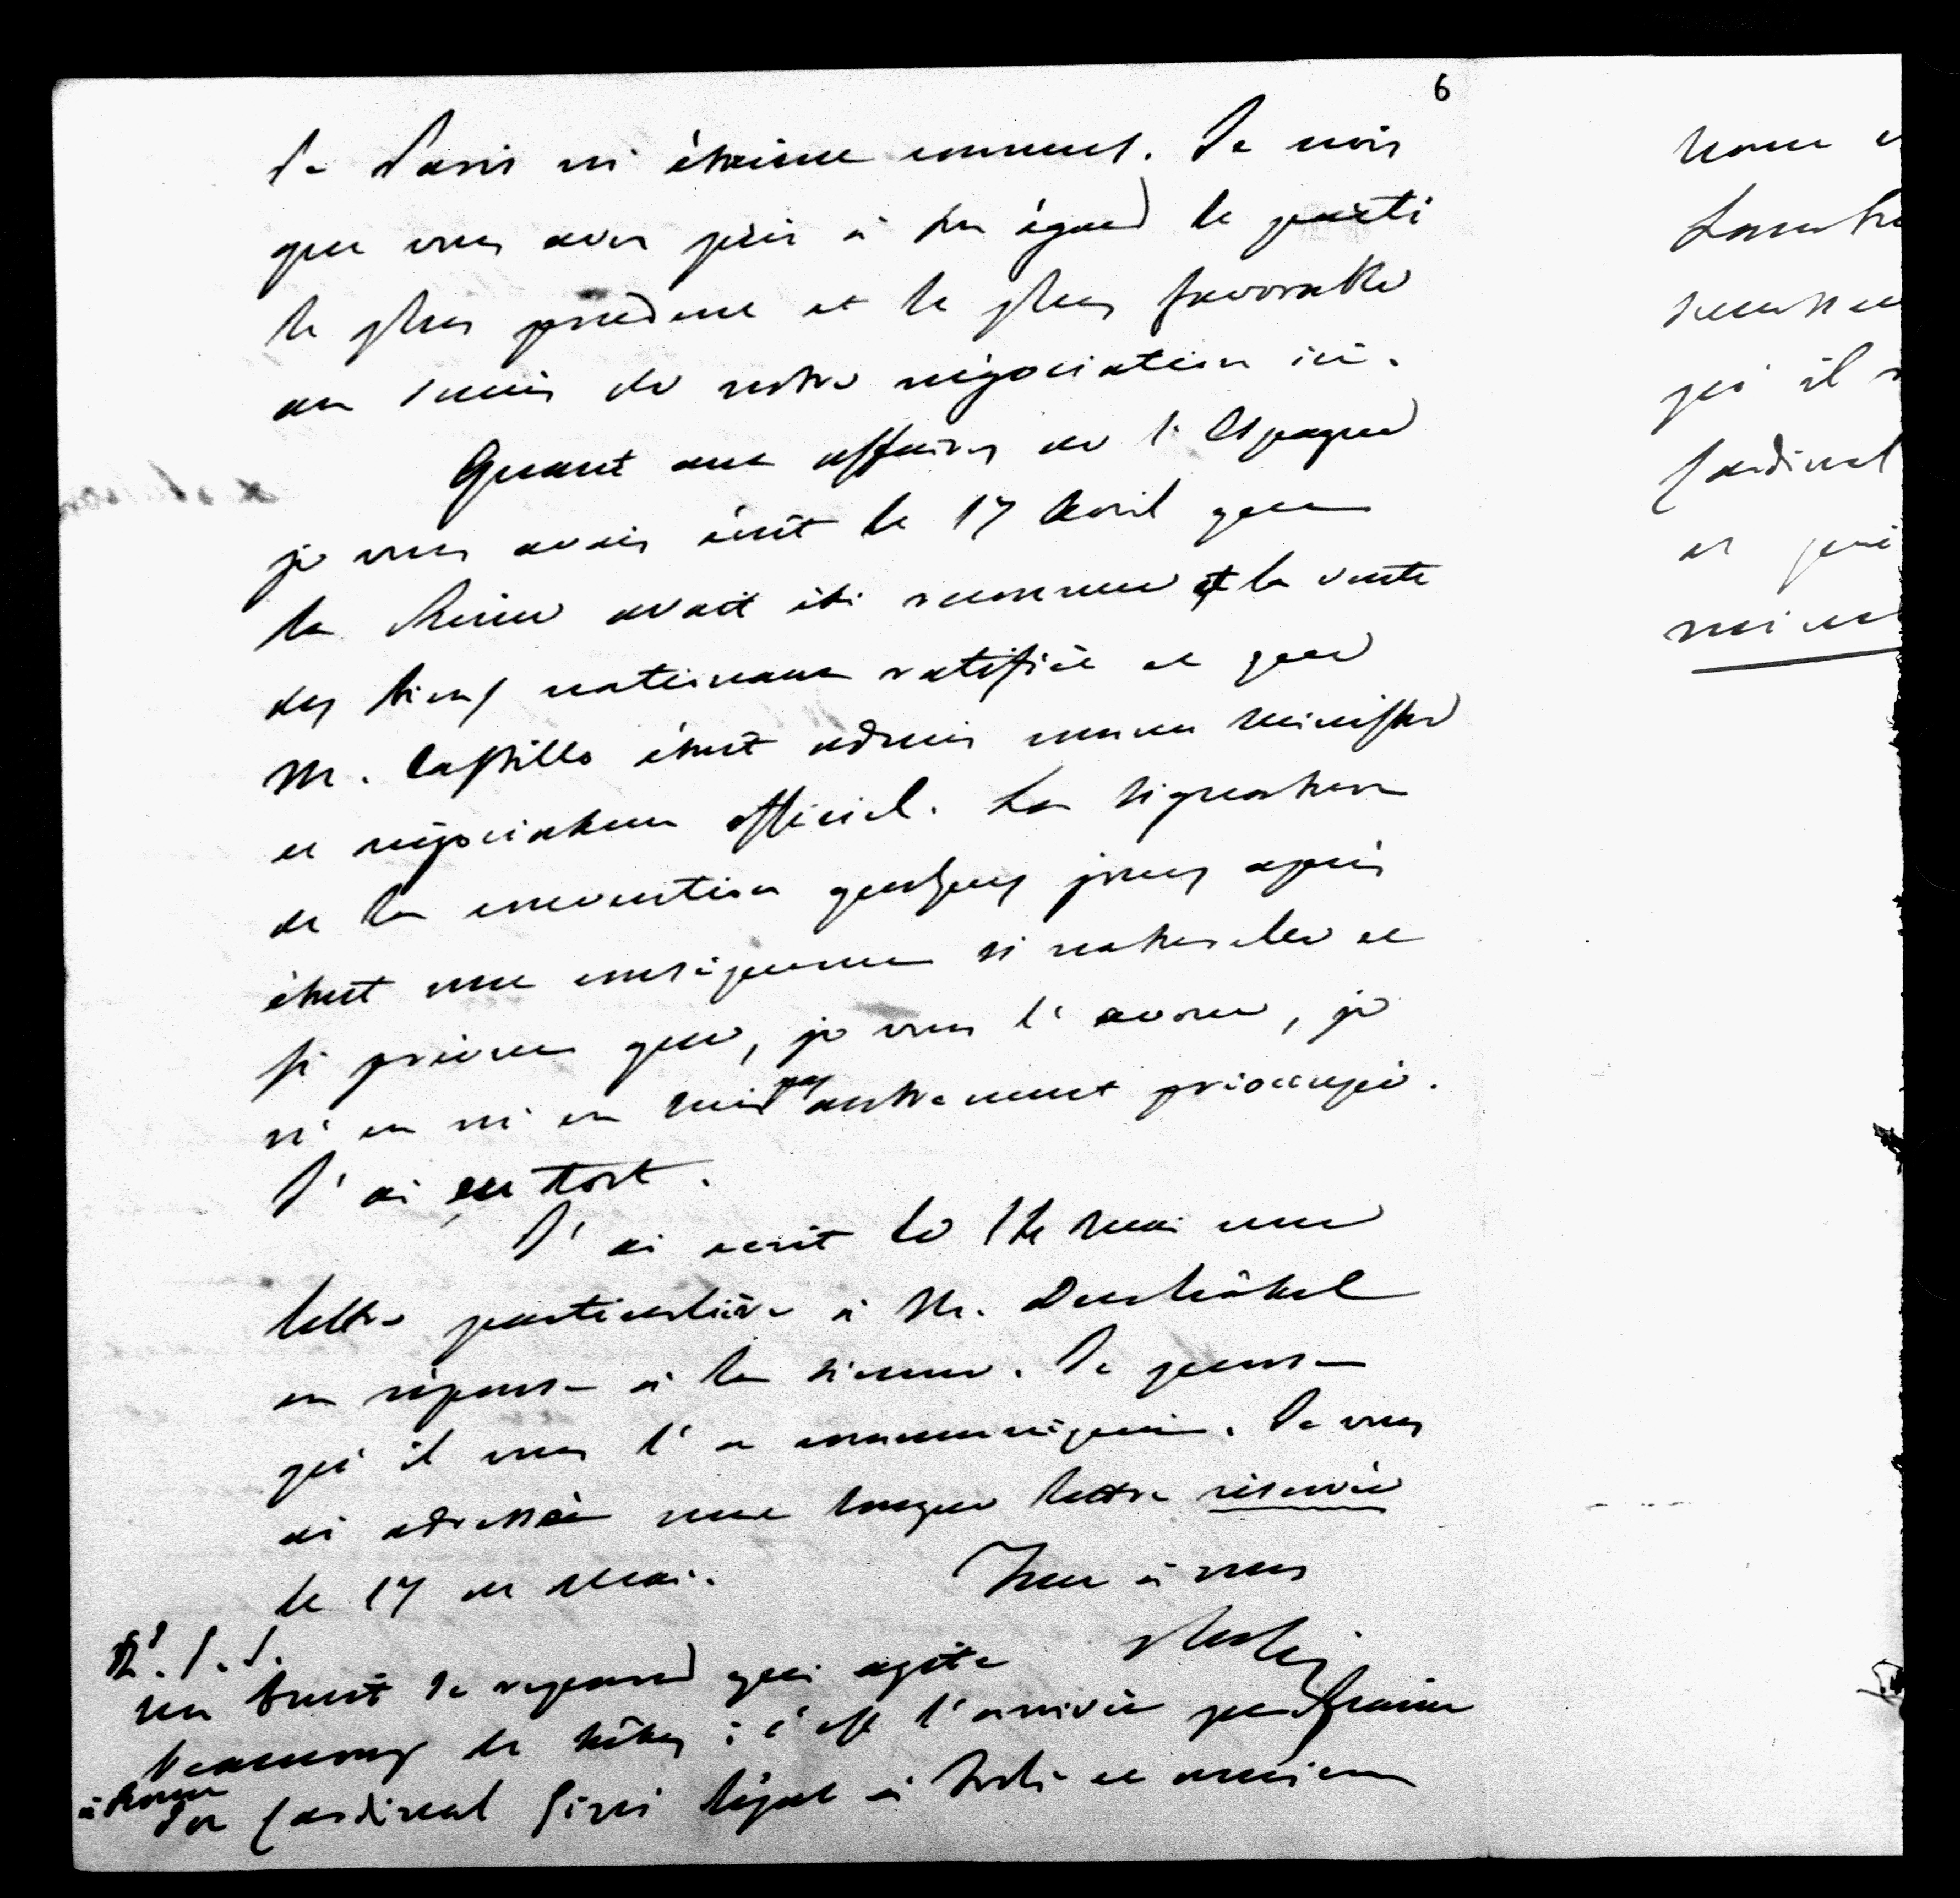 6
de Paris ni étaient connues. Je vois
que vous avez pris à son égard le parti
le plus prudent et le plus favorable
au succès de notre négociation ici.
Quant aux affaires de l'Espagne
je vous avais écrit le 17 Avril que
la Reine avait été reconnue et la vente
des biens nationaux ratifiée et que
M. Castillo était admis comme Ministre
et négociateur officiel. La signature
de la convention quelques jours après
était une conséquence si naturelle et
si prévue que, je vous l'avoue, je
m'en suis pas autrement préoccupé.
J'ai eu tort.
J'ai écrit le 14 mai une
lettre particulière à M. Duchâtel
en réponse à la sienne. Je pense
qu'il vous l'a communiquée. Je vous
ai adressée une longue lettre réservée
le 17 de Mai.
Tout à vous
Rossi
P.S.
Un bruit se répand qui agite
beaucoup de têtes : c'est l'arrivée prochaine
à Rome
du Cardinal Gizzi légat à Forli et ancien
Nonce
qu'il
Cardinal
et